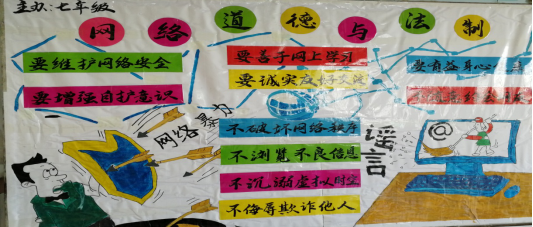 主办:七年级
网络道德与法制
要维护网络安全
要增强自护意识
要善于网上学习
要诚实友好交流
要有益身心
网络暴力
不破坏网络秩序
不浏览不良信息
不沉溺虚拟时空
不侮辱欺诈他人
谣言
@